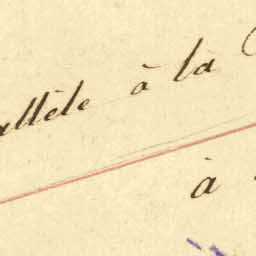 allèle à la
à